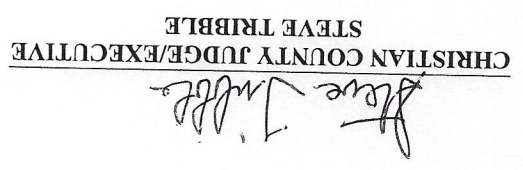 Steve Tribble
CHRISTIAN COUNTY JUDGE/EXECUTIVE
STEVE TRIBBLE